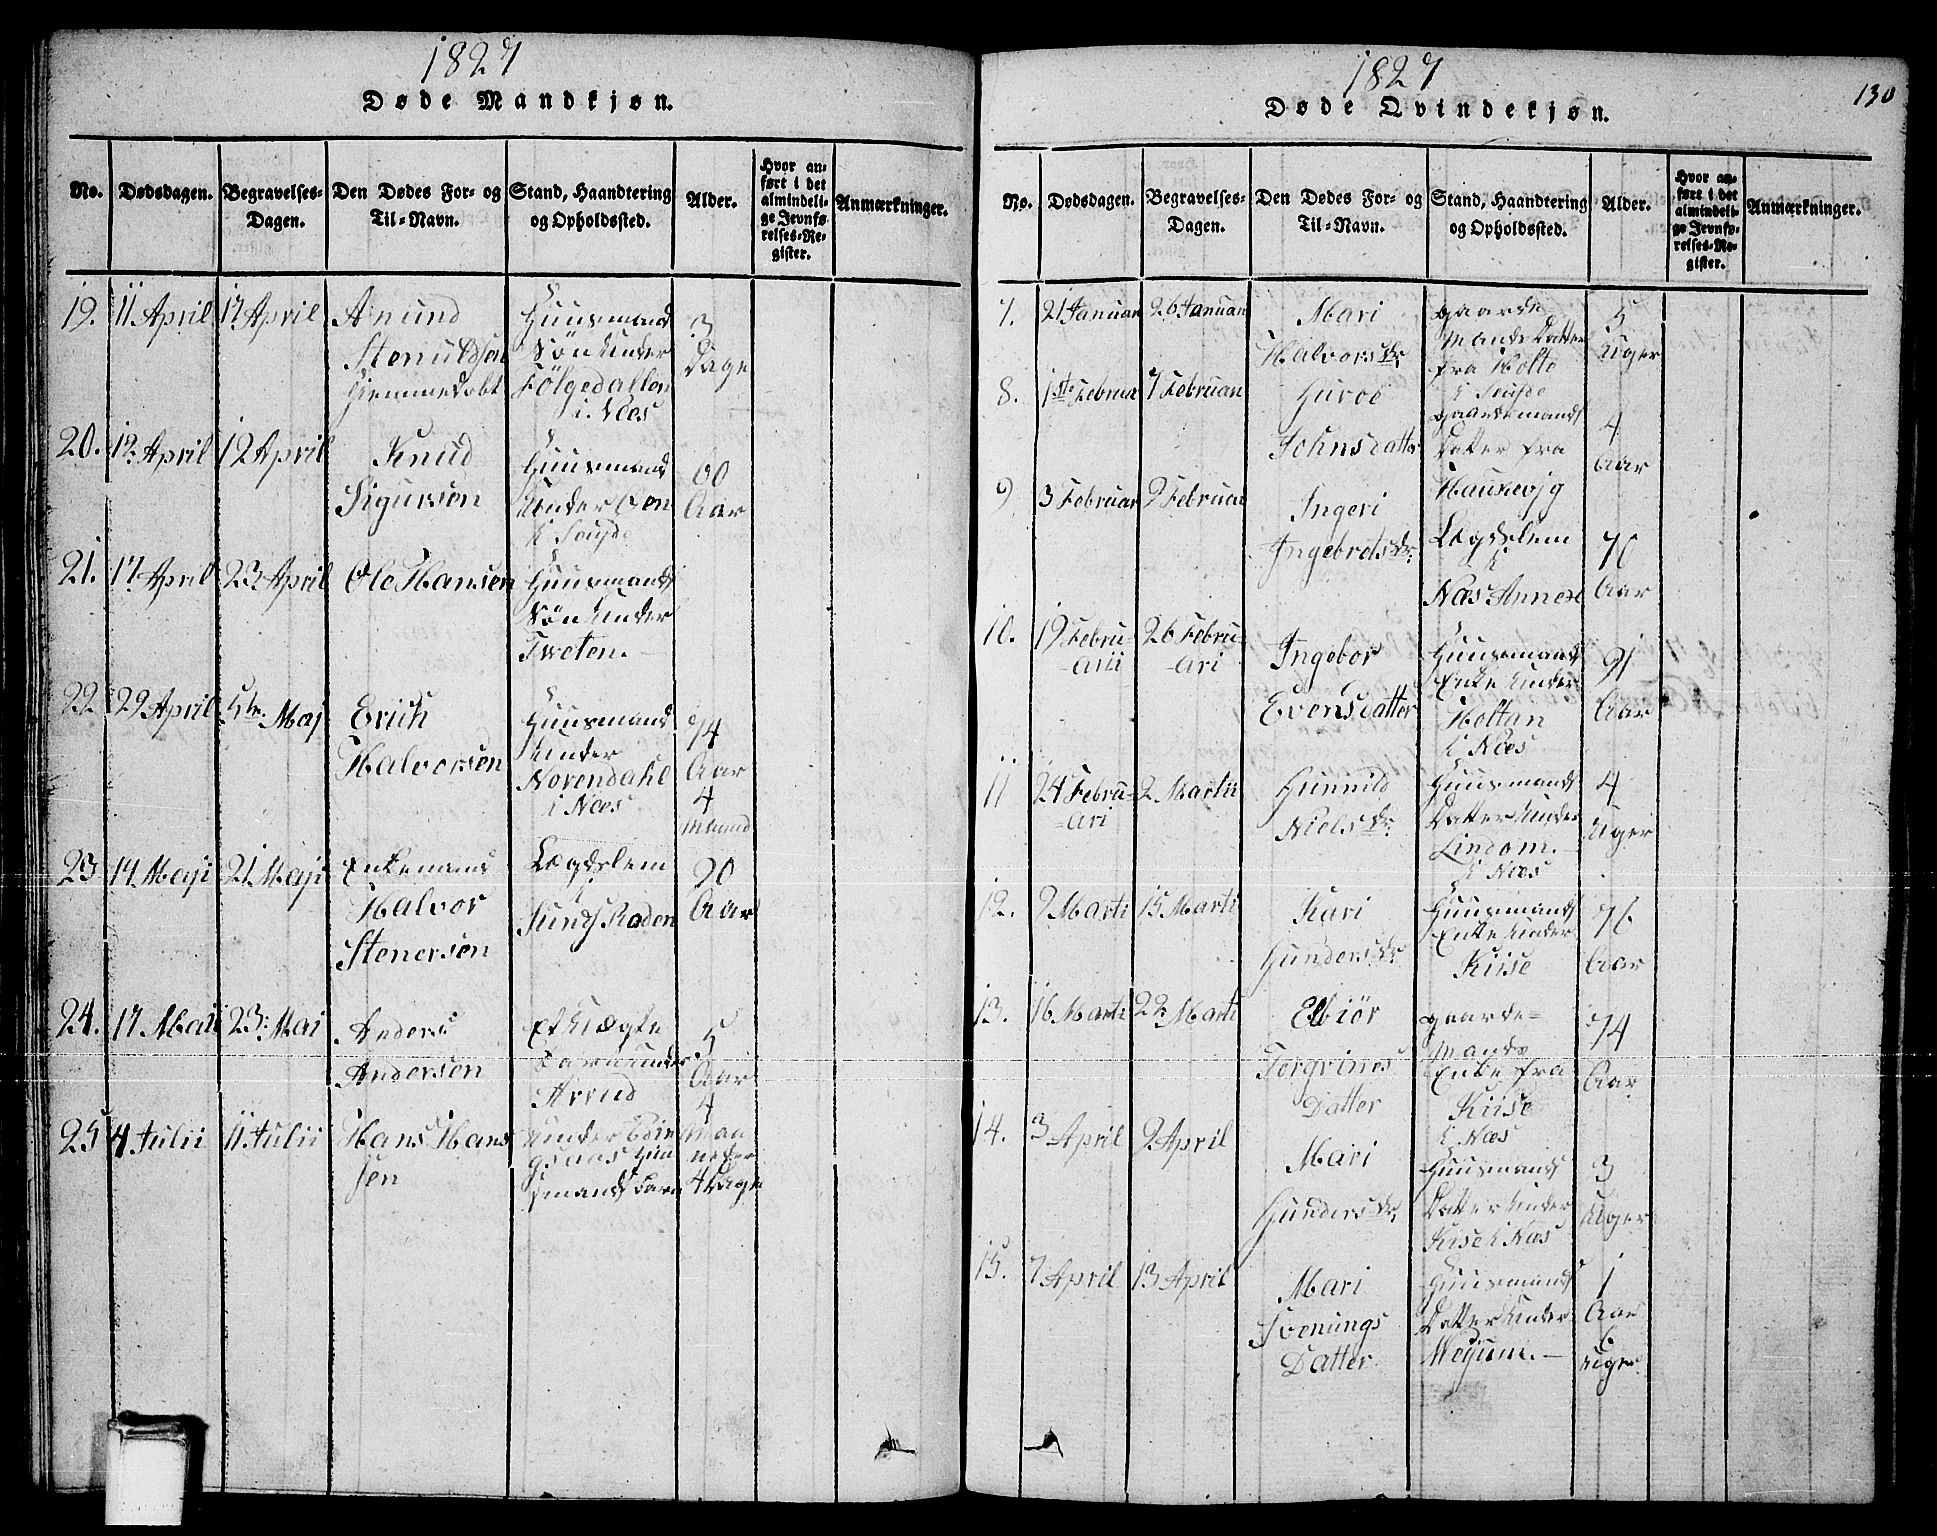 1827
Døde Mandkjøn.
No.
Dødsdagen.
Begravelses-
Dagen.
Den Dødes For- og
Til-Navn.
Stand, Haandtering
og Opholdssted.
Alder.
Hvor an-
ført i det
almindeli-
ge Jevnfø-
relses-Re-
gister.
Anmærkninger.
19. 11 April 17 April
Anund
Stenuldsen
Hiemmedøbt
Huusmand
Søn Under
Følgedallen
i Næs
3
Dage
20. 12 April 19 April
Knud
Sigursen
Huusmand
Under
60
Aar
21. 17 April 23 April
Ole Hansen
Huusmands
Søn Under
Tweten.
22 29 April 5te Maj
Erich
Halvorsen
Huusmand
Under
Norendahl
i Næs
74
Aar
4
23 14 Maji 21 Maji
Enkemand
Halvor
Stenersen
Lægdslem
i
Sunds Roden
90
Aar
24. 17 Maii 23: Mai
Anders
Andersen
Et Uægte
Barn under
Arnud
5
Aar
4
25 4 Julii 11 Julii
Hans Hans
sen
Under
smands Barn
4 Dage
1827
130
Døde Qvindekjøn.
No.
Dødsdagen.
Begravelses-
Dagen.
Den Dødes For- og
Til-Navn.
Stand, Haandtering
og Opholdssted.
Alder.
Hvor an-
ført i det
almindeli-
ge Jevnfø-
relses-Re-
gister.
Anmærkninger.
7. 21 Januari 26 Januari
Mari
Halvorsdr
Gaard
Mands Datter
fra Holte
5
Uger
8. 1ste Februar 7 Februari
Guroe
Johnsdatter
Gaardemands
Datter fra
Haukevjg
4
Aar
9 3 Februar 9 Februari
Ingeri
Ingebretsdr.
Lægdslem
i
Næs Annexe
70
Aar
10. 19 Febru-
arii
26 Febru-
ari
Ingebor
Evensdatter
Huusmands
Enke Under
Holtan
i Næs
91
Aar
11 24 Febru-
ari
2 Martii
Gunnild
Nielsdr.
Huusmands
Datter Under
Lindom.
i Næs
4
Uger
12. 9 Marti 15 Marti
Kari
Gundersdr
Huusmands
Enke Under
Kiise
76
Aar
13. 16 Marti 22 Marti
Elbiör
Torgrines
Datter
gaarde-
Mands
Enke fra
Kiise
i Næs
74
Aar
14. 3 April 9 April
Mari
Gundersdr,
Huusmands
Datter Under
Kise i Næs
3
Uger
15. 7 April 13 April
Mari
Svenings
Datter
Huusmands
Datter Under
1
Aar
6
uger